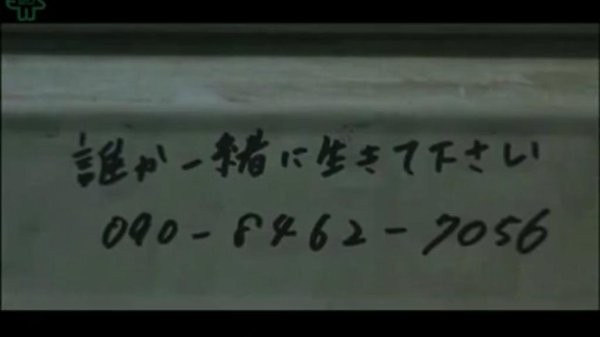 誰か一緒に生きて下さい
090-8462-7056